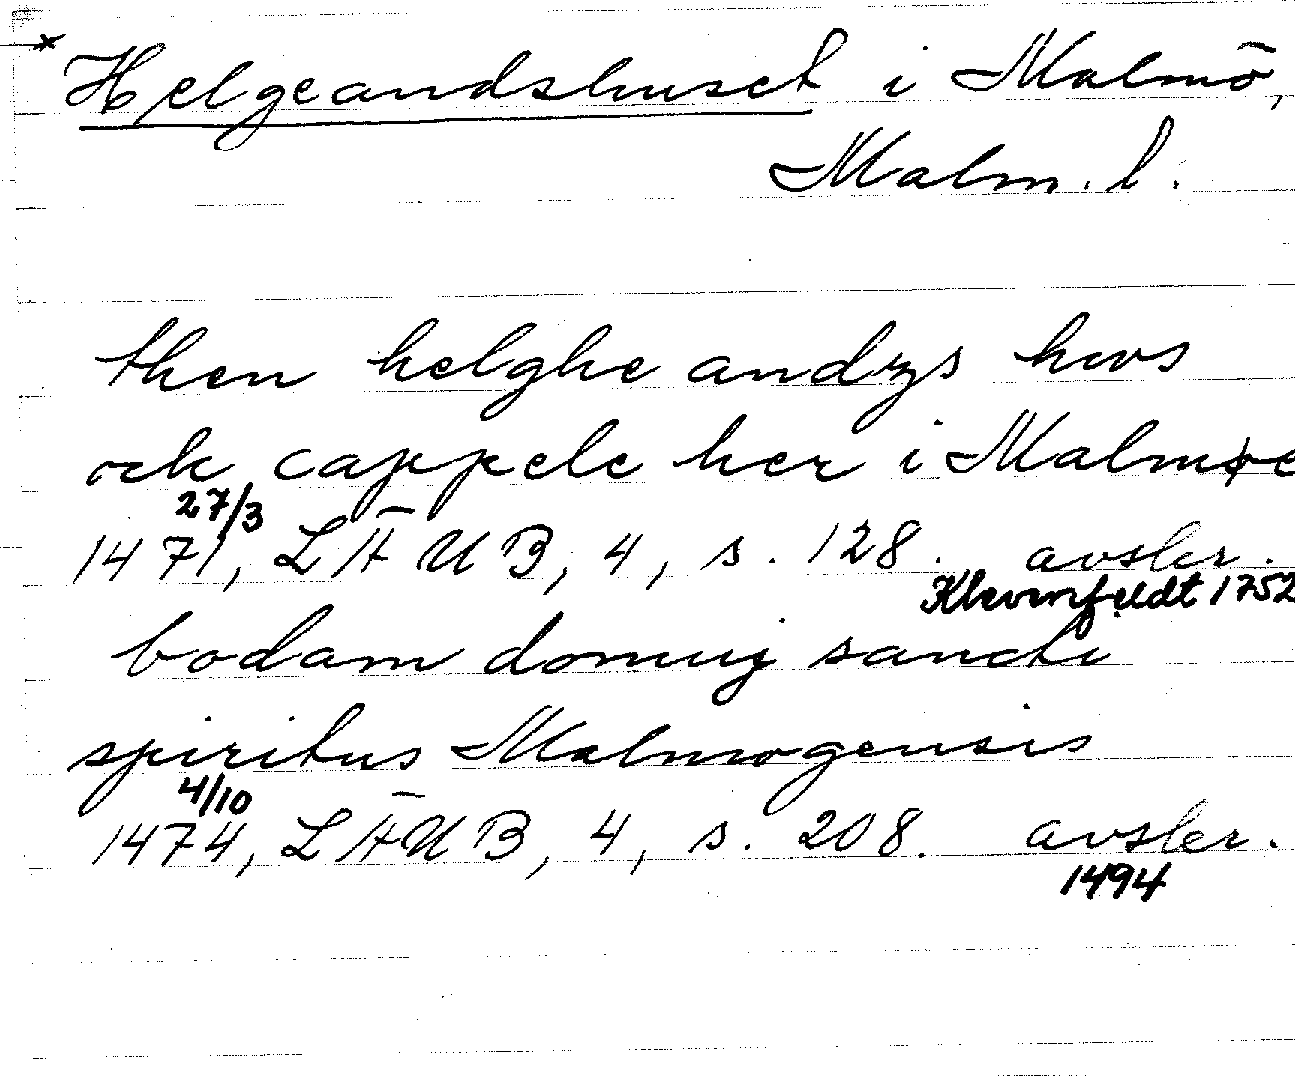 × Helgeandshuset i Malmö,
Malm. l.
then helghe andzs hws
ock cappele her i Malmøe
27/3
1471, LÄUB, 4, s. 128. avskr.
Klevenfeldt 1752
bodam domuj sancti
spiritus Malmogensis
4/10
1474, LÄUB, 4, s. 208. avskr.
1494